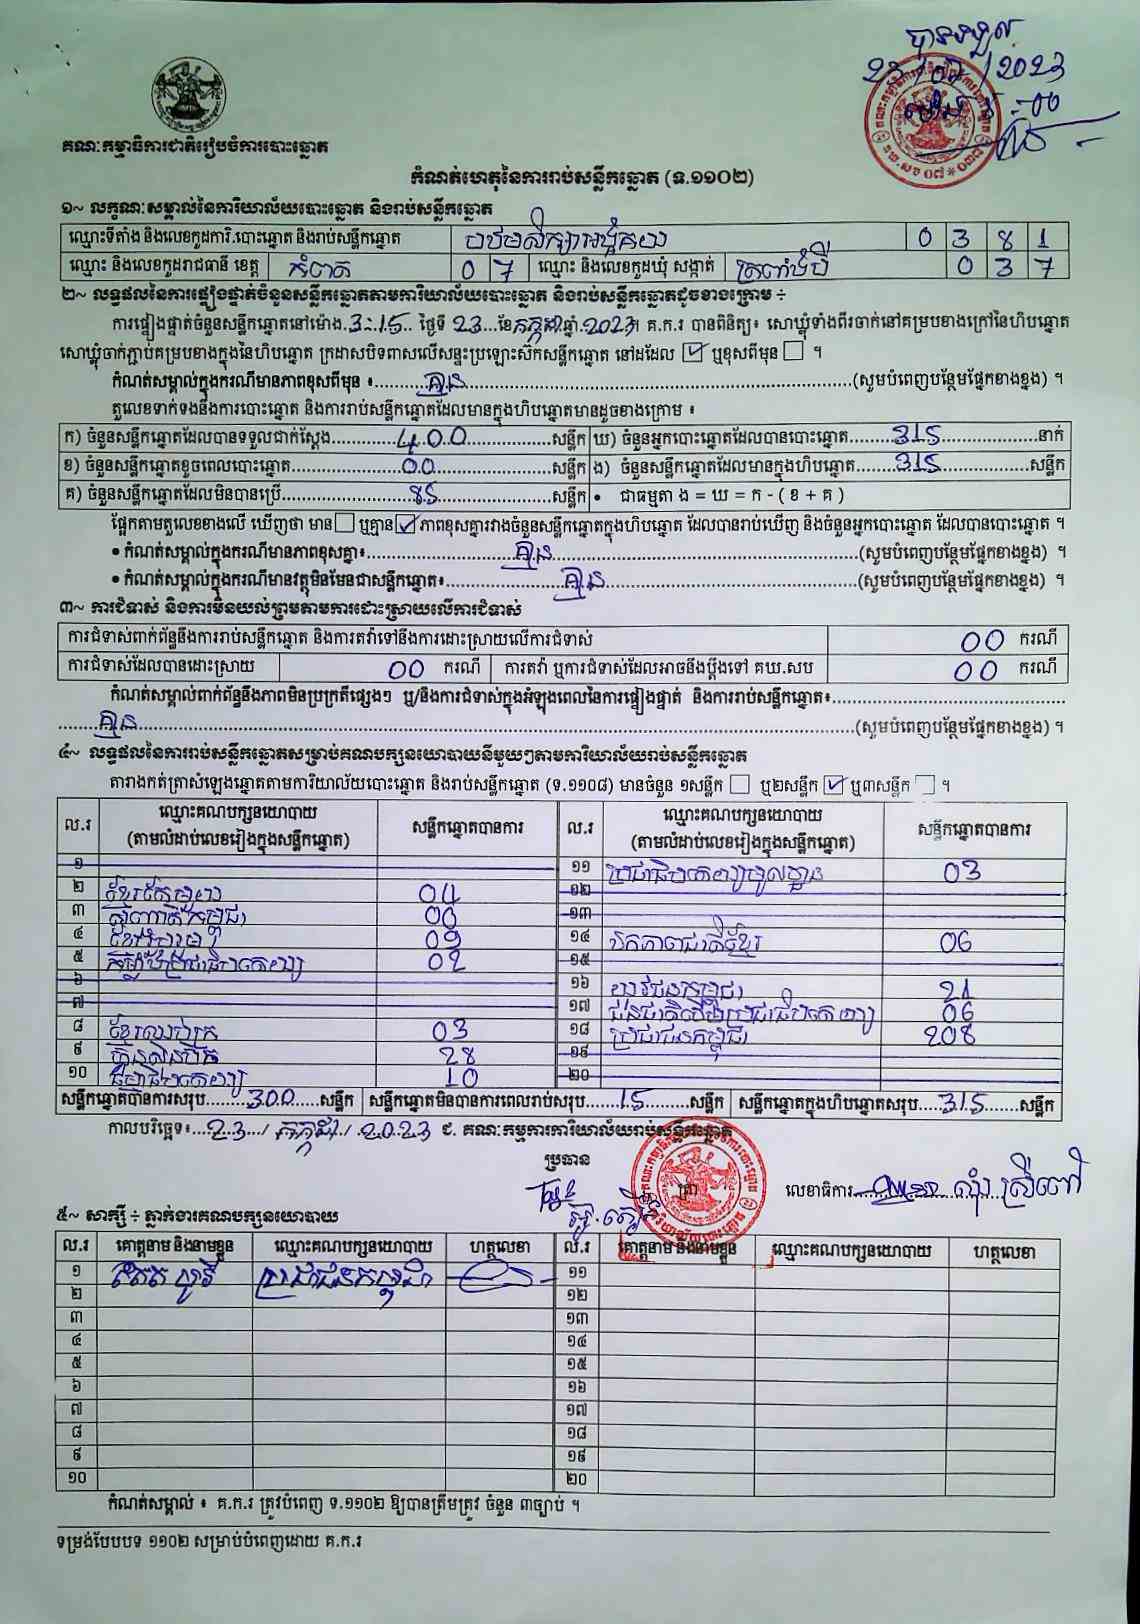 បានទទួល
23/07/2023
គណៈកម្មាធិការជាតិរៀបចំការបោះឆ្នោត
កំណត់ហេតុនៃការរាប់សន្លឹកឆ្នោត (ទ.១១០២)
១~ លក្ខណៈសម្គាល់នៃការិយាល័យបោះឆ្នោត និងរាប់សន្លឹកឆ្នោត
ឈ្មោះទីតាំង និងលេខកូដការិ.បោះឆ្នោត និងរាប់សន្លឹកឆ្នោត បឋមសិក្សា 0 3 8 1
ឈ្មោះ និងលេខកូដរាជធានី ខេត្ត កំពត 0 7 ឈ្មោះ និងលេខកូដឃុំ សង្កាត់ 0 3 7
២~ លទ្ធផលនៃការផ្ទៀងផ្ទាត់ចំនួនសន្លឹកឆ្នោតតាមការិយាល័យបោះឆ្នោត និងរាប់សន្លឹកឆ្នោតដូចខាងក្រោម ÷
ការផ្ទៀងផ្ទាត់ចំនួនសន្លឹកឆ្នោតនៅម៉ោង.3:15.. ថ្ងៃទី 23...ខែកក្កដាឆ្នាំ.2023។ គ.ក.រ បានពិនិត្យ៖ សោឃ្លុំទាំងពីរចាក់នៅគម្របខាងក្រៅនៃហិបឆ្នោត
សោឃ្លុំចាក់ភ្ជាប់គម្របខាងក្នុងនៃហិបឆ្នោត ក្រដាសបិទពាសលើសន្ទះប្រឡោះស៊កសន្លឹកឆ្នោត នៅដដែល ☑ ឬខុសពីមុន ☐ ។
កំណត់សម្គាល់ក្នុងករណីមានភាពខុសពីមុន ៖..........គ្មាន..........(សូមបំពេញបន្ថែមផ្នែកខាងខ្នង) ។
តួលេខទាក់ទងនឹងការបោះឆ្នោត និងការរាប់សន្លឹកឆ្នោតដែលមានក្នុងហិបឆ្នោតមានដូចខាងក្រោម ៖
ក) ចំនួនសន្លឹកឆ្នោតដែលបានទទួលជាក់ស្តែង..........400..........សន្លឹក ឃ) ចំនួនអ្នកបោះឆ្នោតដែលបានបោះឆ្នោត..........315..........នាក់
ខ) ចំនួនសន្លឹកឆ្នោតខូចពេលបោះឆ្នោត..........00..........សន្លឹក ង) ចំនួនសន្លឹកឆ្នោតដែលមានក្នុងហិបឆ្នោត..........315..........សន្លឹក
គ) ចំនួនសន្លឹកឆ្នោតដែលមិនបានប្រើ..........85..........សន្លឹក • ជាធម្មតា ង = ឃ = ក - ( ខ + គ )
ផ្អែកតាមតួលេខខាងលើ ឃើញថា មាន ☐ ឬគ្មាន ☑ ភាពខុសគ្នារវាងចំនួនសន្លឹកឆ្នោតក្នុងហិបឆ្នោត ដែលបានរាប់ឃើញ និងចំនួនអ្នកបោះឆ្នោត ដែលបានបោះឆ្នោត ។
• កំណត់សម្គាល់ក្នុងករណីមានភាពខុសគ្នា៖..........គ្មាន..........(សូមបំពេញបន្ថែមផ្នែកខាងខ្នង) ។
• កំណត់សម្គាល់ក្នុងករណីមានវត្ថុមិនមែនជាសន្លឹកឆ្នោត៖..........គ្មាន..........(សូមបំពេញបន្ថែមផ្នែកខាងខ្នង) ។
៣~ ការជំទាស់ និងការមិនយល់ព្រមតាមការដោះស្រាយលើការជំទាស់
ការជំទាស់ពាក់ព័ន្ធនឹងការរាប់សន្លឹកឆ្នោត និងការតវ៉ាទៅនឹងការដោះស្រាយលើការជំទាស់ 00 ករណី
ការជំទាស់ដែលបានដោះស្រាយ 00 ករណី ការតវ៉ា ឬការជំទាស់ដែលអាចនឹងប្តឹងទៅ គឃ.សប 00 ករណី
កំណត់សម្គាល់ពាក់ព័ន្ធនឹងភាពមិនប្រក្រតីផ្សេងៗ ឬ/និងការជំទាស់ក្នុងអំឡុងពេលនៃការផ្ទៀងផ្ទាត់ និងការរាប់សន្លឹកឆ្នោត៖..........
..........គ្មាន..........(សូមបំពេញបន្ថែមផ្នែកខាងខ្នង) ។
៤~ លទ្ធផលនៃការរាប់សន្លឹកឆ្នោតសម្រាប់គណបក្សនយោបាយនីមួយៗតាមការិយាល័យរាប់សន្លឹកឆ្នោត
តារាងកត់ត្រាសំឡេងឆ្នោតតាមការិយាល័យបោះឆ្នោត និងរាប់សន្លឹកឆ្នោត (ទ.១១០៨) មានចំនួន ១សន្លឹក ☐ ឬ២សន្លឹក ☑ ឬ៣សន្លឹក ☐ ។
ល.រ ឈ្មោះគណបក្សនយោបាយ (តាមលំដាប់លេខរៀងក្នុងសន្លឹកឆ្នោត) សន្លឹកឆ្នោតបានការ ល.រ ឈ្មោះគណបក្សនយោបាយ (តាមលំដាប់លេខរៀងក្នុងសន្លឹកឆ្នោត) សន្លឹកឆ្នោតបានការ
១ ១១ ប្រជាធិបតេយ្យមូលដ្ឋាន 03
២ ខ្មែរតែមួយ 04 ១២
៣ 00 ១៣
៤ 09 ១៤ ឯកភាពជាតិខ្មែរ 06
៥ 02 ១៥
៦ ១៦ យុវជនកម្ពុជា 21
៧ ១៧ ជនជាតិដើមប្រជាធិបតេយ្យ 06
៨ 03 ១៨ ប្រជាជនកម្ពុជា 208
៩ ហ្វ៊ុនស៊ិនប៉ិច 28 ១៩
១០ 10 ២០
សន្លឹកឆ្នោតបានការសរុប........300......សន្លឹក សន្លឹកឆ្នោតមិនបានការពេលរាប់សរុប......15........សន្លឹក សន្លឹកឆ្នោតក្នុងហិបឆ្នោតសរុប....315.......សន្លឹក
កាលបរិច្ឆេទ៖...23.../កក្កដា/.2023 ជ. គណៈកម្មការការិយាល័យរាប់សន្លឹកឆ្នោត
ប្រធាន
ត្រា
លេខាធិការ
៥~ សាក្សី ÷ ភ្នាក់ងារគណបក្សនយោបាយ
ល.រ គោត្តនាម និងនាមខ្លួន ឈ្មោះគណបក្សនយោបាយ ហត្ថលេខា ល.រ គោត្តនាម និងនាមខ្លួន ឈ្មោះគណបក្សនយោបាយ ហត្ថលេខា
១ ប្រជាជនកម្ពុជា ១១
២ ១២
៣ ១៣
៤ ១៤
៥ ១៥
៦ ១៦
៧ ១៧
៨ ១៨
៩ ១៩
១០ ២០
កំណត់សម្គាល់ ៖ គ.ក.រ ត្រូវបំពេញ ទ.១១០២ ឱ្យបានត្រឹមត្រូវ ចំនួន ៣ច្បាប់ ។
ទម្រង់បែបបទ ១១០២ សម្រាប់បំពេញដោយ គ.ក.រ